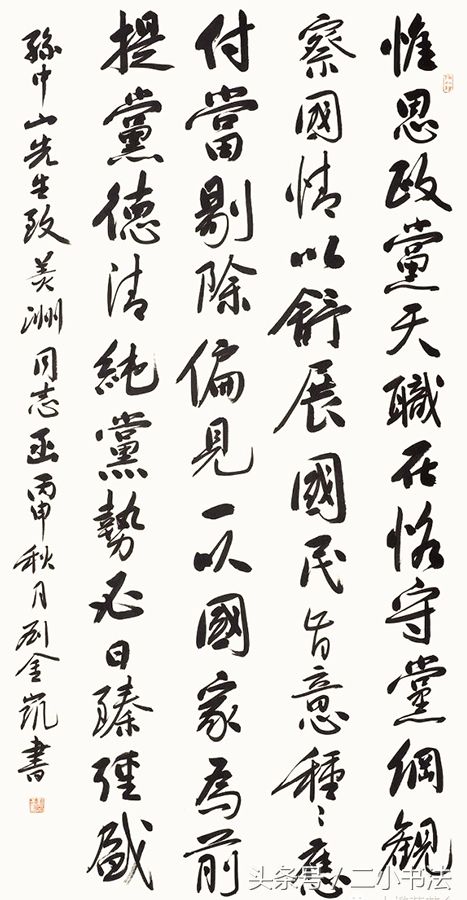 惟思政黨天職在恪守黨綱觀
察國情以舒展國民旨意種種應
付當剔除偏見一以國家為前
提黨德清純黨勢必日臻強盛
孫中山先生致美洲同志函丙申秋月劉金凱書
头条号/二小书法